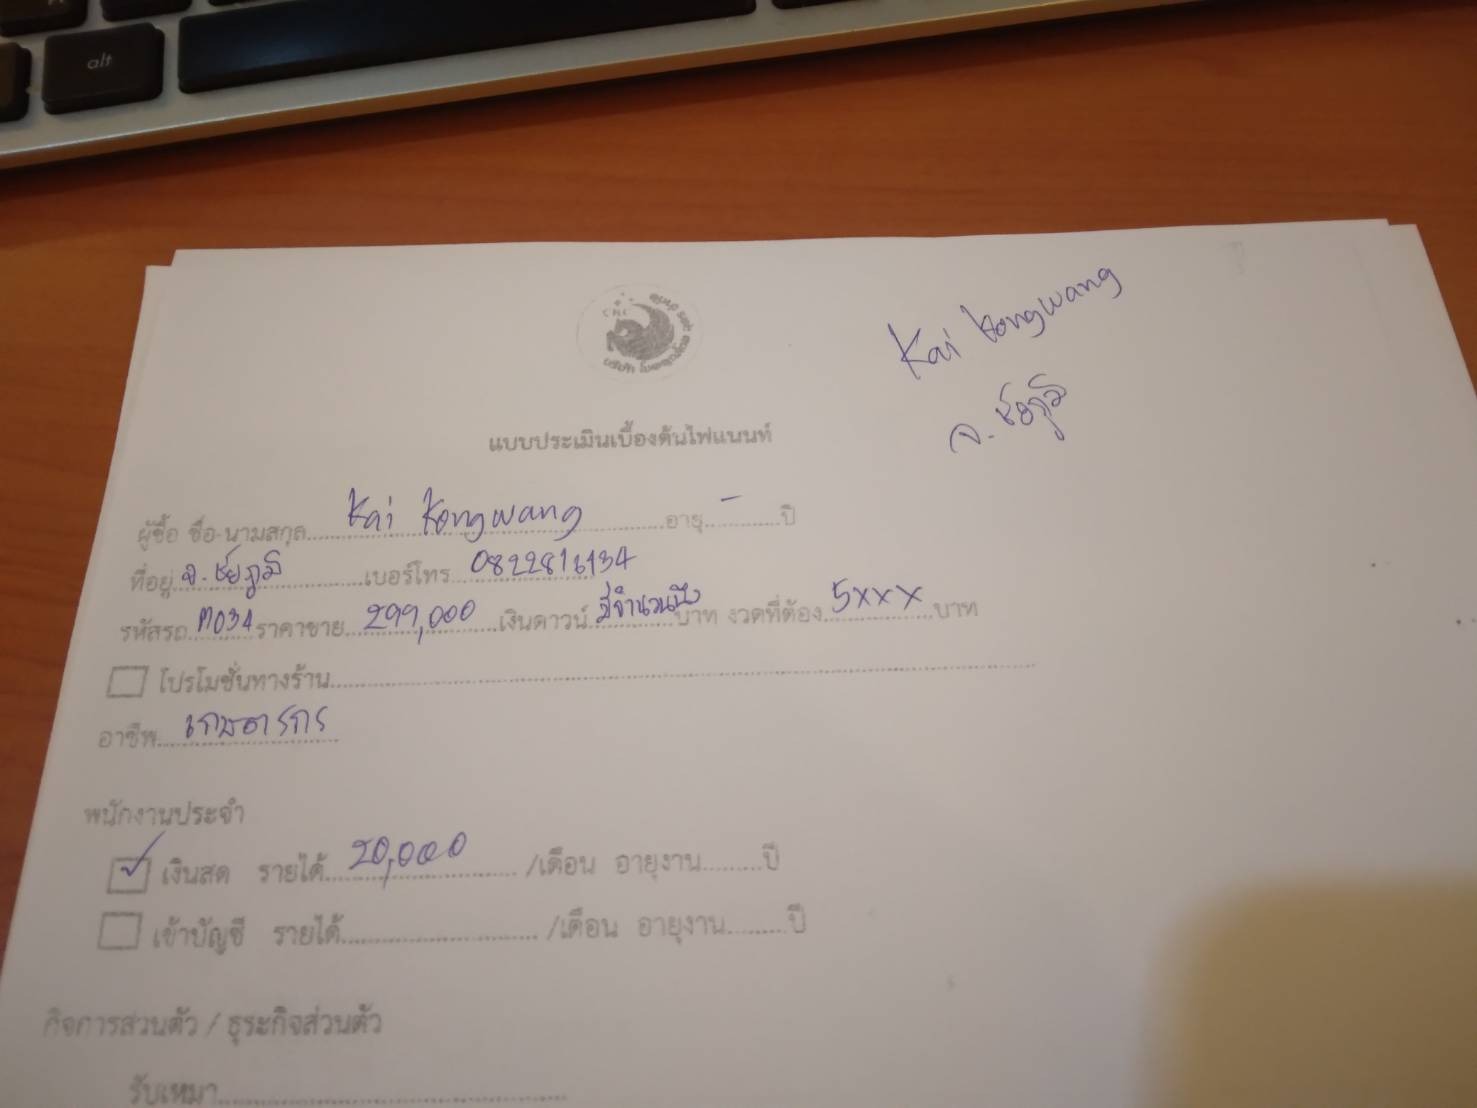 alt
Kai Kongwang
จ.ชัยภูมิ
บริษัท
แบบประเมินเบื้องต้นไฟแนนท์
ผู้ซื้อ ชื่อ-นามสกุล Kai Kongwang อายุ - ปี
ที่อยู่ จ.ชัยภูมิ เบอร์โทร
รหัสรถ M034 ราคาขาย 299,000 เงินดาวน์ มีจำนวนนึง บาท งวดที่ต้อง 5xxx บาท
โปรโมชั่นทางร้าน
อาชีพ เกษตรกร
พนักงานประจำ
เงินสด รายได้ 20,000 /เดือน อายุงาน ปี
เข้าบัญชี รายได้ /เดือน อายุงาน ปี
กิจการส่วนตัว / ธุระกิจส่วนตัว
รับเหมา